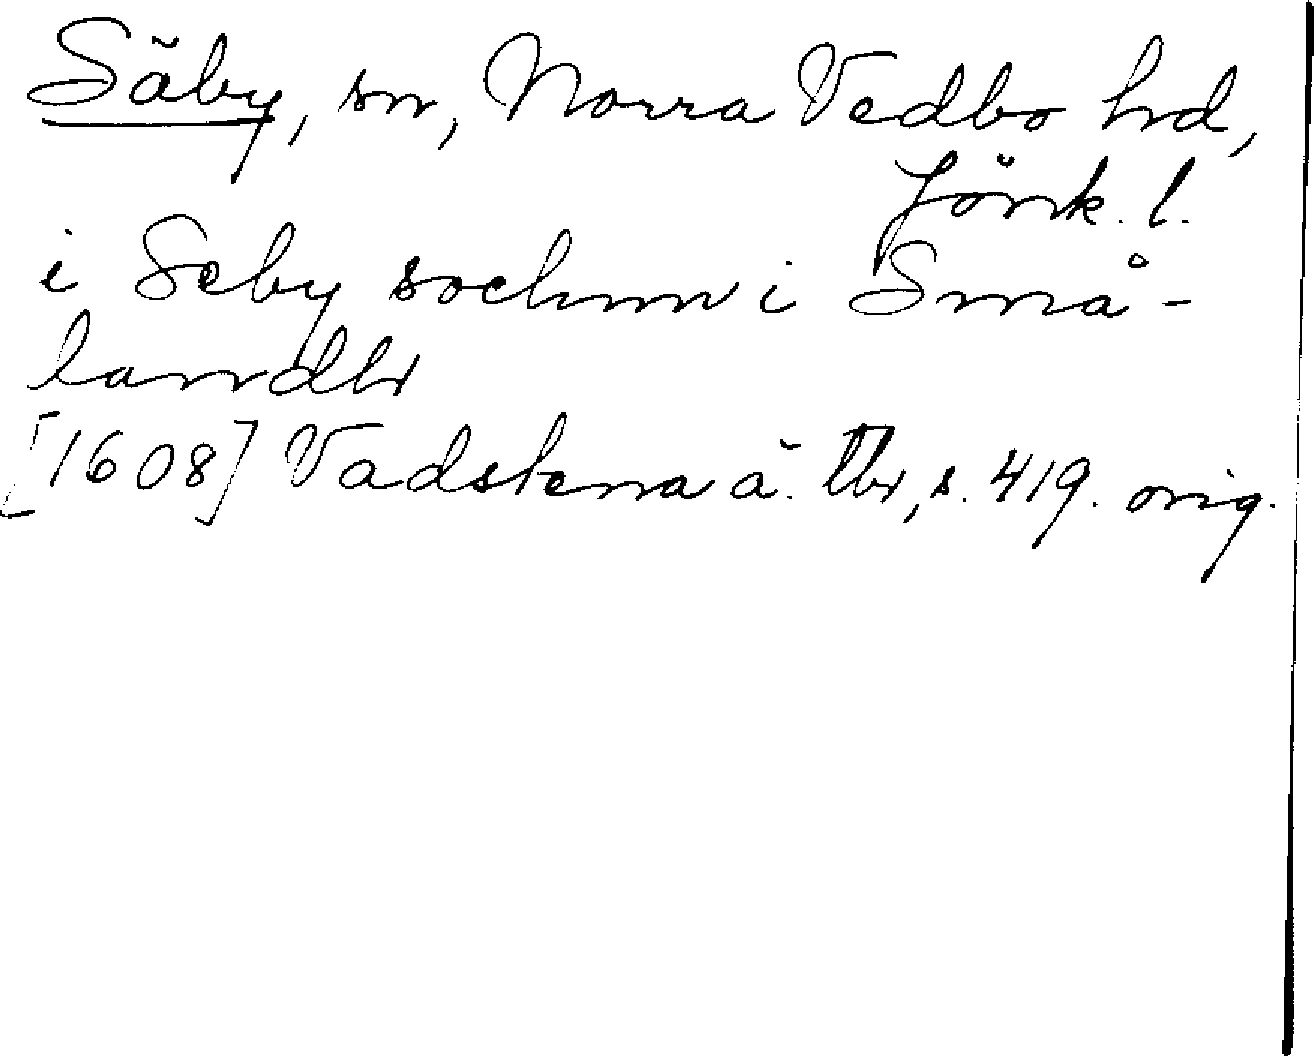 Säby, sn, Norra Vedbo hd,
Jönk. l.
i Seby sochnn i Små-
landh
[1608] Vadstena ä. tbr, s. 419. orig.